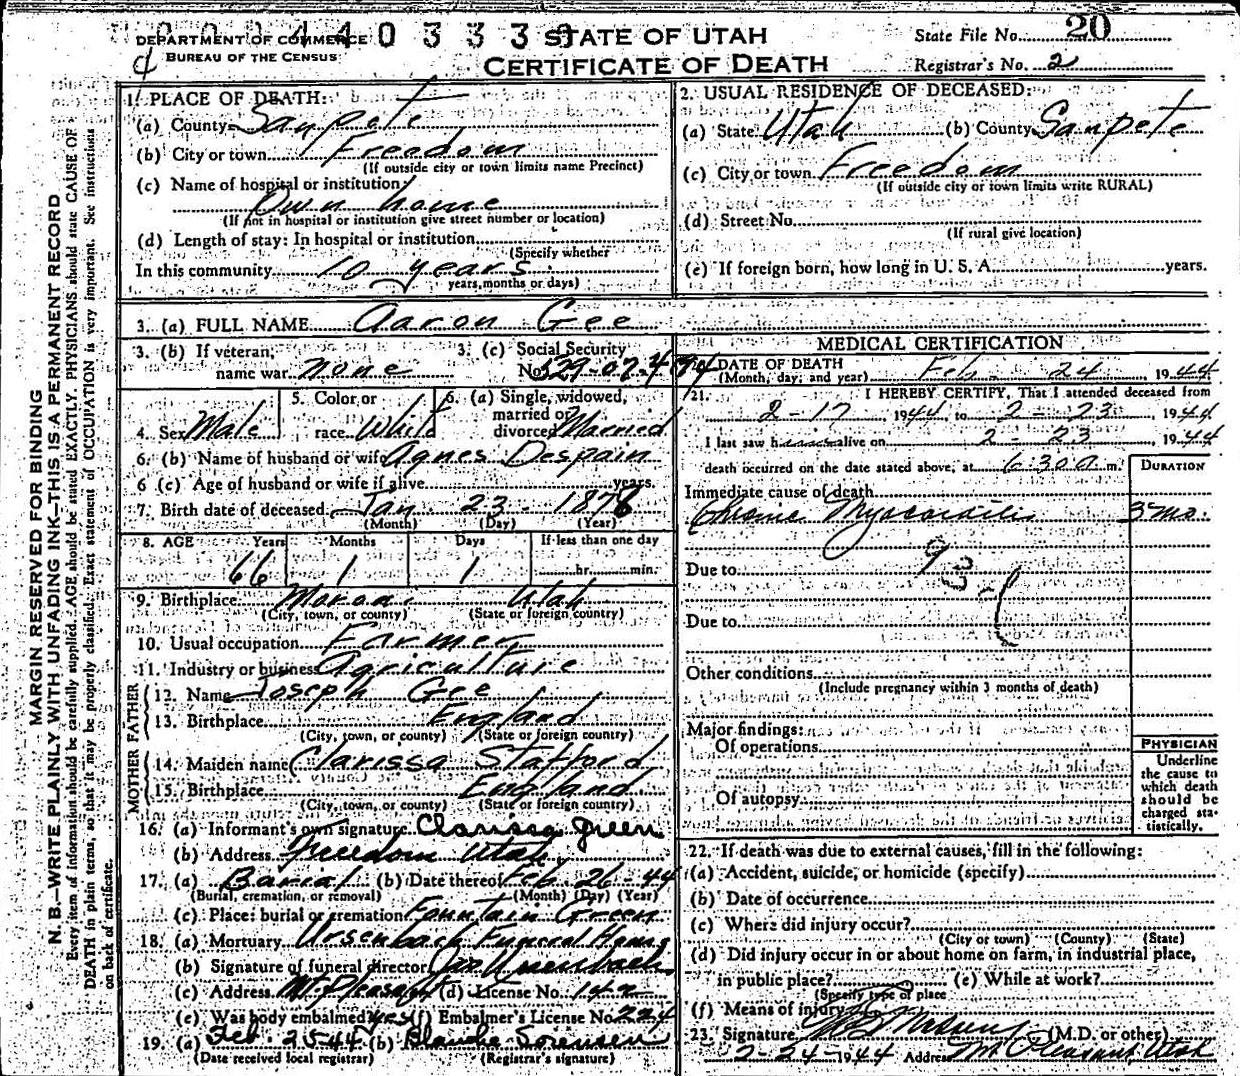 DEPARTMENT OF COMMERCE
BUREAU OF THE CENSUS
STATE OF UTAH
CERTIFICATE OF DEATH
State File No. 20
Registrar's No. 2
MARGIN RESERVED FOR BINDING
N. B.—WRITE PLAINLY WITH UNFADING INK—THIS IS A PERMANENT RECORD
Every item of information should be carefully supplied. AGE should be stated EXACTLY. PHYSICIANS should state CAUSE OF
DEATH in plain terms, so that it may be properly classified. Exact statement of OCCUPATION is very important. See instructions
on back of certificate.
1. PLACE OF DEATH:
(a) County Sanpete
(b) City or town Freedom
(If outside city or town limits name Precinct)
(c) Name of hospital or institution:
Own home
(If not in hospital or institution give street number or location)
(d) Length of stay: In hospital or institution
(Specify whether
In this community 10 years
years, months or days)
2. USUAL RESIDENCE OF DECEASED:
(a) State Utah (b) County Sanpete
(c) City or town Freedom
(If outside city or town limits write RURAL)
(d) Street No.
(If rural give location)
(e) If foreign born, how long in U. S. A. years.
3. (a) FULL NAME Aaron Gee
3. (b) If veteran, name war none
3. (c) Social Security No. 529-07-4
4. Sex Male
5. Color or race White
6. (a) Single, widowed, married or divorced Married
6. (b) Name of husband or wife Agnes Despain
6 (c) Age of husband or wife if alive years.
7. Birth date of deceased Jan 23 1878
(Month) (Day) (Year)
8. AGE Years Months Days If less than one day
66 1 1 hr. min.
9. Birthplace Moroni Utah
(City, town, or county) (State or foreign country)
10. Usual occupation Farmer
11. Industry or business Agriculture
FATHER
12. Name Joseph Gee
13. Birthplace England
(City, town, or county) (State or foreign country)
MOTHER
14. Maiden name Clarissa Stafford
15. Birthplace England
(City, town, or county) (State or foreign country)
16. (a) Informant's own signature Clarissa Green
(b) Address Freedom Utah
17. (a) Burial (b) Date thereof Feb. 26-44
(Burial, cremation, or removal) (Month) (Day) (Year)
(c) Place: burial or cremation Fountain Green
18. (a) Mortuary Ursenbach Funeral Home
(b) Signature of funeral director Ursenbach
(c) Address Mt. Pleasant (d) License No. 142
(e) Was body embalmed yes (f) Embalmer's License No. 224
19. (a) Feb. 25-44 (b) Blanche Sorensen
(Date received local registrar) (Registrar's signature)
MEDICAL CERTIFICATION
DATE OF DEATH
(Month, day, and year) Feb. 24 1944
21. I HEREBY CERTIFY, That I attended deceased from
2-17 1944 to 2-23, 1944
I last saw him alive on 2-23, 1944
death occurred on the date stated above, at 6:30 a m.
DURATION
Immediate cause of death
Chronic Myocarditis 3 mo.
Due to
93-
Due to
Other conditions
(Include pregnancy within 3 months of death)
Major findings:
Of operations
Of autopsy
PHYSICIAN
Underline
the cause to
which death
should be
charged sta-
tistically.
22. If death was due to external causes, fill in the following:
(a) Accident, suicide, or homicide (specify)
(b) Date of occurrence
(c) Where did injury occur?
(City or town) (County) (State)
(d) Did injury occur in or about home on farm, in industrial place,
in public place? (e) While at work?
(Specify type of place
(f) Means of injury
23. Signature (M.D. or other)
2-24-1944 Address Mt Pleasant, Utah